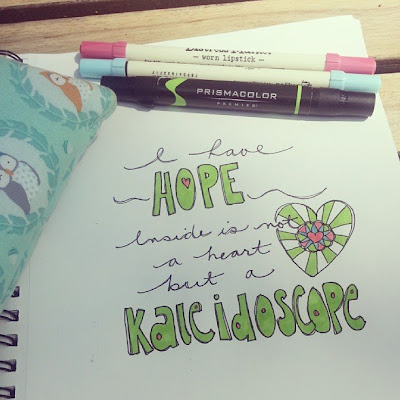 Distress Marker
— worn lipstick —
PRISMACOLOR
PREMIER
I have
HOPE
Inside is not
a heart
but a
KaLeidoscope